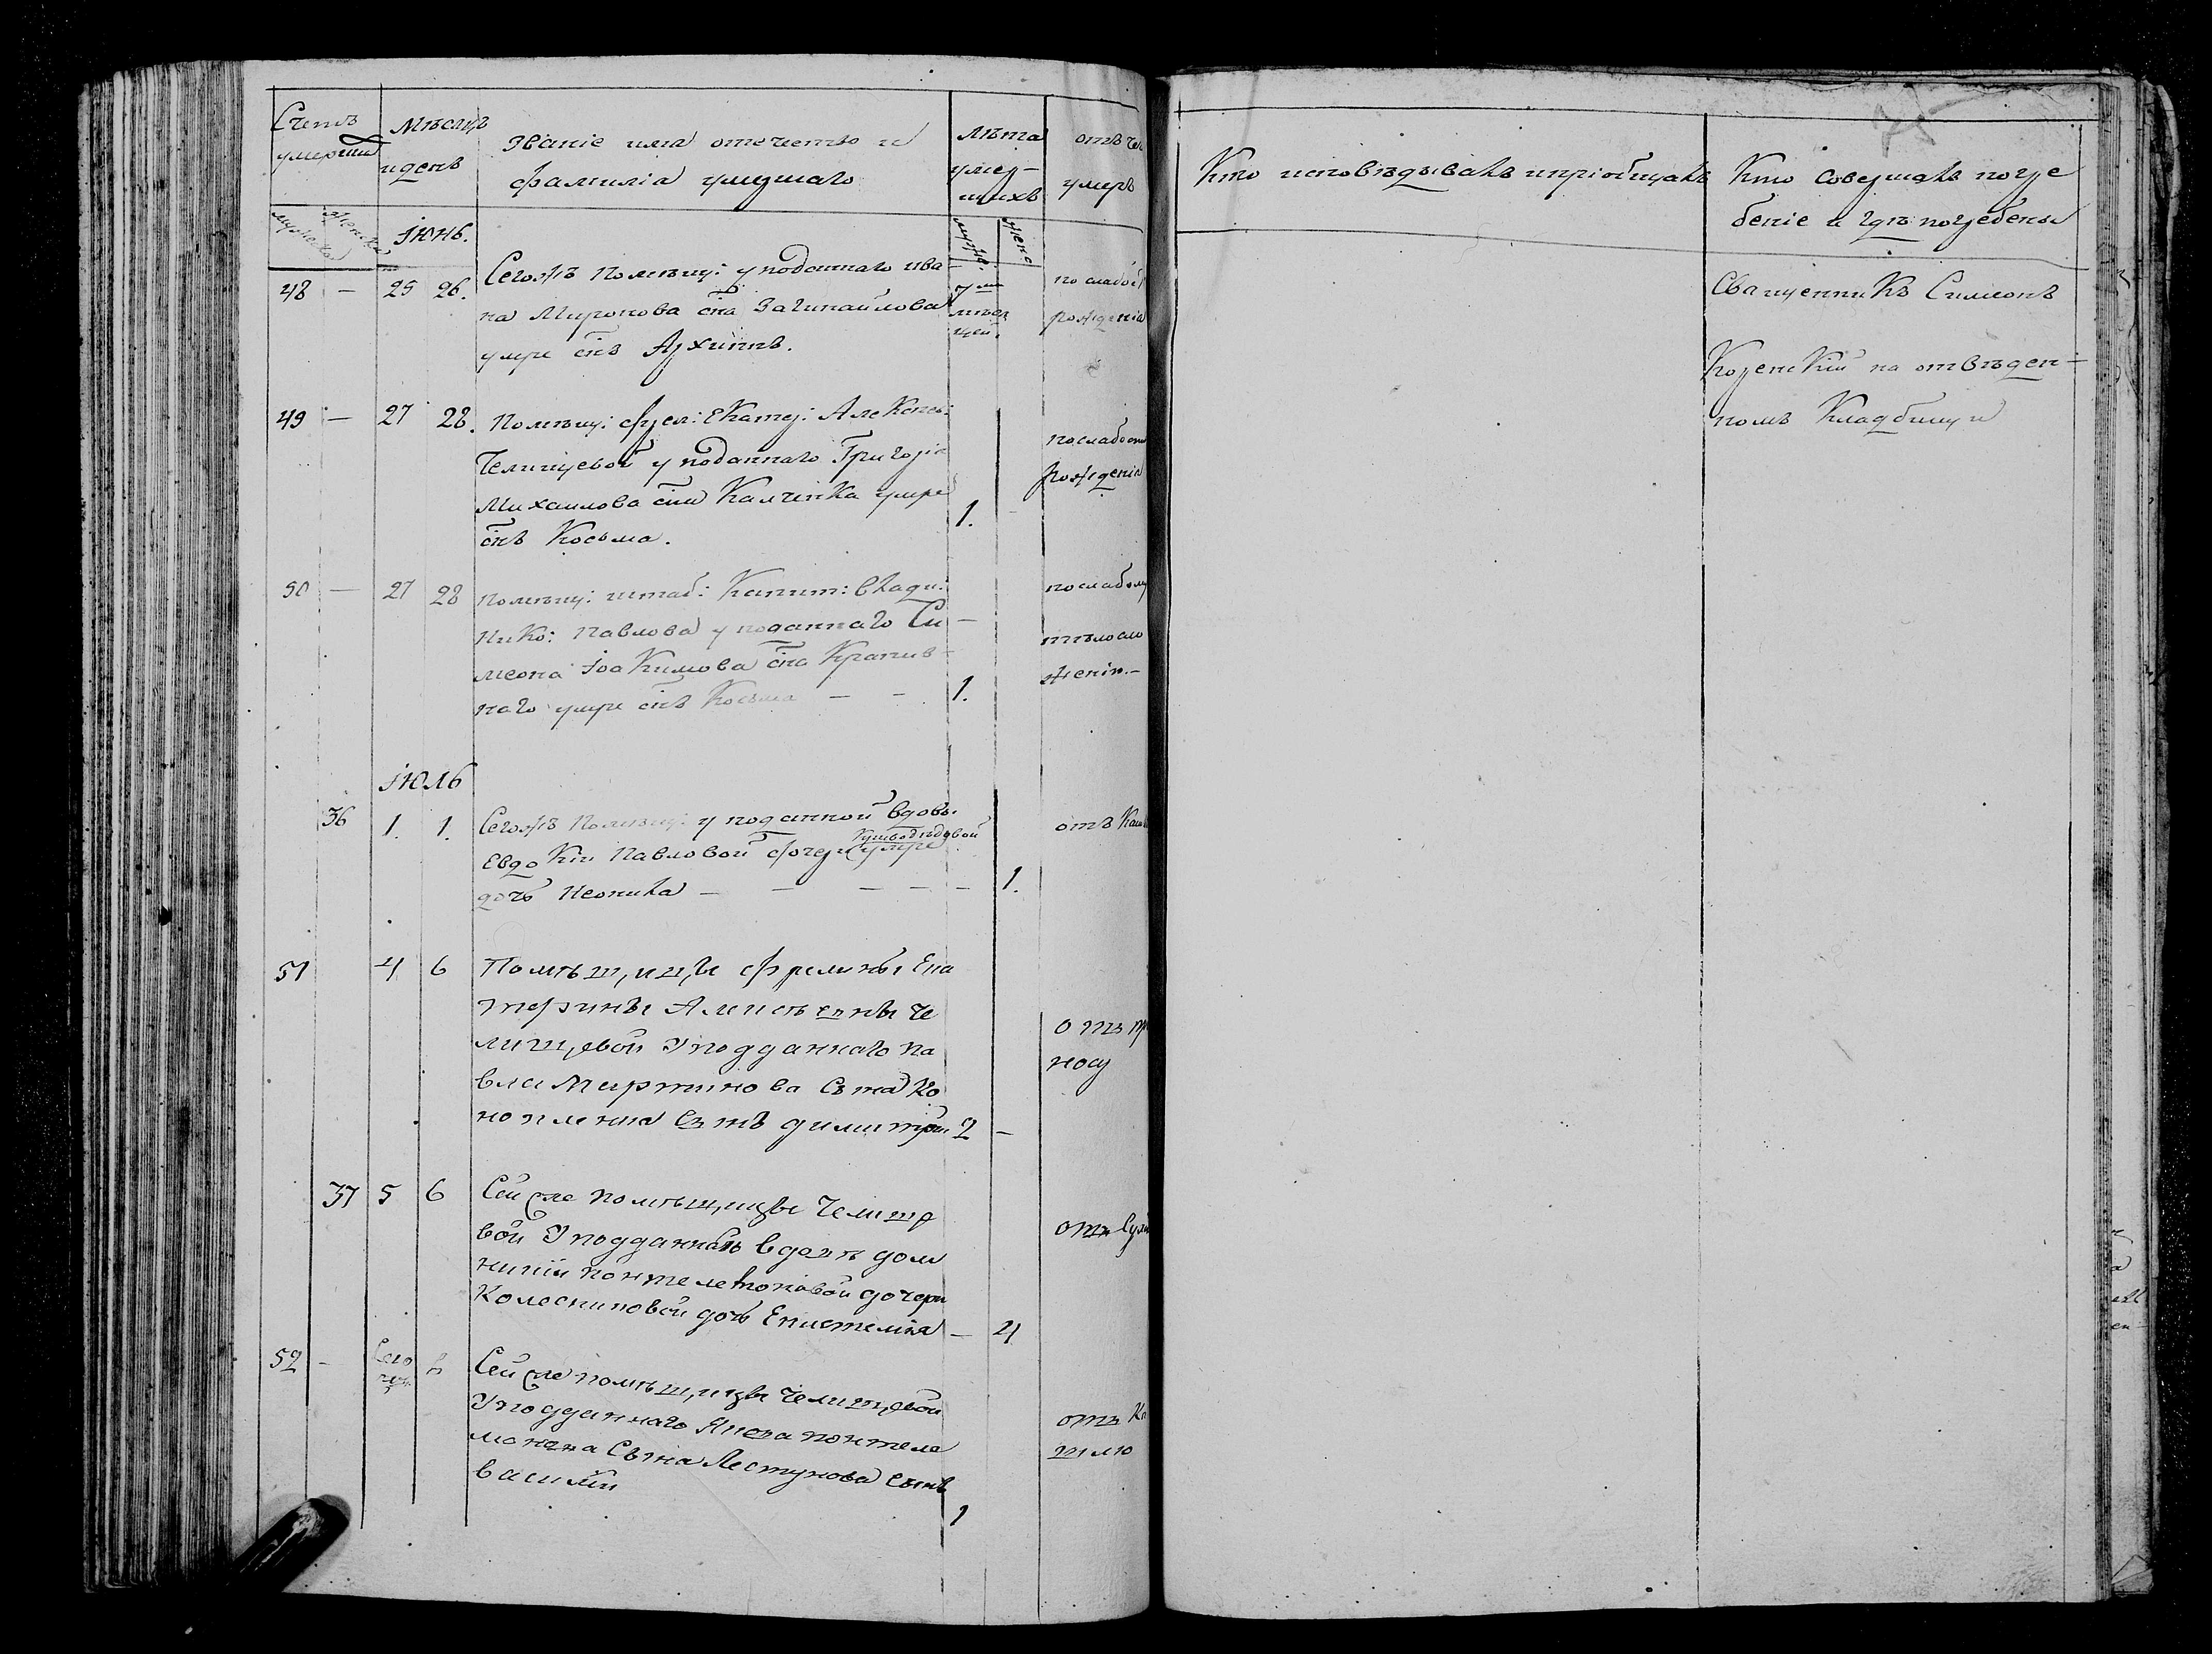 Счетъ умершихъ
Мѣсяцъ и день
Званіе имя отечетво и
фамилія умершаго
лѣта умер-
шихъ
отъ чего
умеръ
Кто исповѣдывалъ и пріобщалъ
Кто совершалъ погре
беніе и гдѣ погребены
мужеска
женска
Іюнь.
муже.
жен:
48 — 25 26. Тогожъ помѣщ: у подданнаго Ива
на Миронова сна
умре снъ Архиппъ.
7ми
мѣся
цей.
по слабос
рожденія
Священникъ Симеонъ
на отвѣден-
номъ кладбищи
49 — 27 28. Помѣщ: фрел: Екатер: Алексѣ:
Челищевой у подданнаго Григорія
Михаилова сна Калченка умре
снъ Косьма.
1.
по слабости
рожденія
50 — 27 28 помѣщ: штаб: Капит: Влади:
Нико: Павлова у подданнаго Си
меона Іоакимова сна Крапив-
наго умре снъ Косьма — — 1.
по слабому
тѣлосло
женію.—
Іюль
36 1. 1. Тогожъ помѣщ: у подданной вдовы
Евдокіи Павловой дочери умре
дочь Неонила — — — — — 1.
отъ Каш
51 4 6 Помѣщицы фрелины Ека
терины Алексѣевны Че
лищевой У подданнаго Па
вла Мартинова Сына Ко
нопленка Сынъ Димитрій 2 —
отъ
носу
37 5 6 Сей же помѣщицы Челище
вой У подданной вдовы Дом
никіи Понтелемоновой дочери
Колесниковой дочь Епистемія — 4
отъ Сух
52 — Того 6 Сей же помѣщицы Челищевой
У подданнаго Якова Понтеле
монова Сына Лестунова Сынъ
Василій
1
отъ Ка
шлю